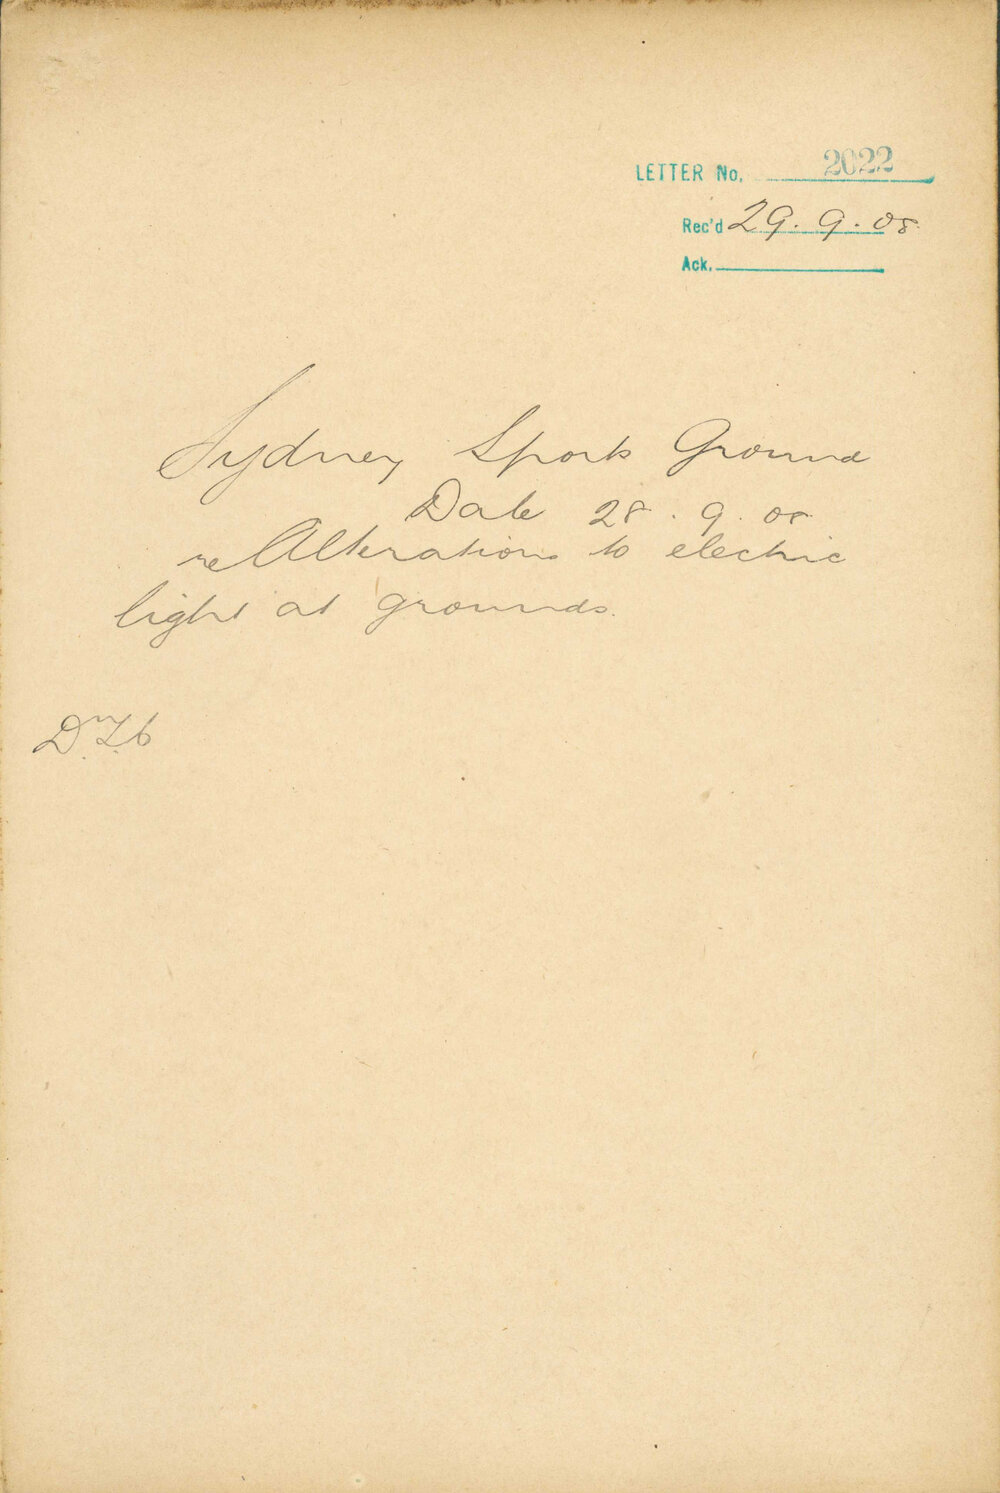 LETTER No. 2022
Rec'd 29. 9. 08
Ack.
Sydney Sports Ground
Date 28. 9. 08
re Alterations to electric
light at grounds.